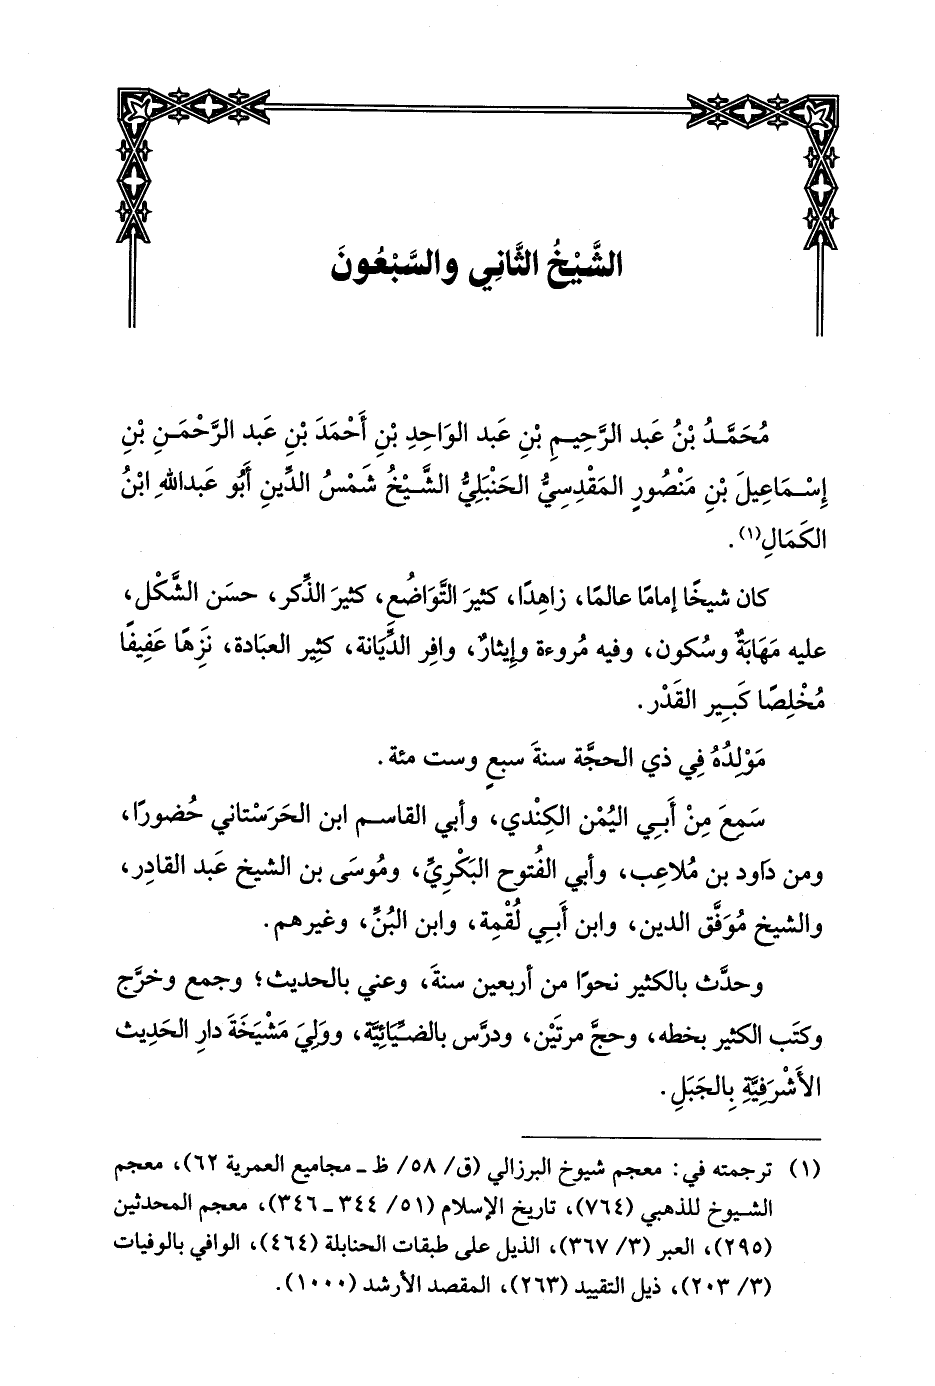 الشَّيْخُ الثَّانِي والسَّبْعُونَ
مُحَمَّدُ بْنُ عَبد الرَّحِيمِ بْنِ عَبد الوَاحِدِ بْنِ أَحْمَدَ بْنِ عَبد الرَّحْمَنِ بْنِ
إِسْمَاعِيلَ بْنِ مَنْصُورٍ المَقْدِسِيُّ الحَنْبَلِيُّ الشَّيْخُ شَمْسُ الدِّينِ أَبُو عَبدالله ابْنُ
الكَمَالِ(١).
كان شيخًا إمامًا عالمًا، زاهِدًا، كثيرَ التَّوَاضُعِ، كثيرَ الذِّكر، حسَن الشَّكْل،
عليه مَهَابَةٌ وسُكون، وفيه مُروءة وإيثارٌ، وافِر الدِّيَانة، كثِير العبَادة، نَزِهًا عَفِيفًا
مُخْلِصًا كَبِير القَدْر.
مَوْلِدُهُ فِي ذي الحجَّة سنةَ سبعٍ وست مئة.
سَمِعَ مِنْ أَبِي اليُمْن الكِنْدي، وأبي القاسم ابن الحَرَسْتاني حُضورًا،
ومن دَاود بن مُلاعِب، وأبي الفُتوح البَكْرِيِّ، ومُوسَى بن الشيخ عَبد القادِر،
والشيخ مُوَفَّق الدين، وابن أَبِي لُقْمِة، وابن البُنِّ، وغيرهم.
وحدَّث بالكثير نحوًا من أربعين سنةَ، وعني بالحديث؛ وجمع وخرَّج
وكتَب الكثير بخطه، وحجَّ مرتَيْن، ودرَّس بالضِّيَائِيَّة، ووَلِيَ مَشْيَخَةَ دارِ الحَدِيث
الأَشْرَفِيَّةِ بِالجَبَلِ.
(١) ترجمته في: معجم شيوخ البرزالي (ق/ ٥٨/ ظ ـ مجاميع العمرية ٦٢)، معجم
الشيوخ للذهبي (٧٦٤)، تاريخ الإسلام (٥١/ ٣٤٤ ـ ٣٤٦)، معجم المحدثين
(٢٩٥)، العبر (٣/ ٣٦٧)، الذيل على طبقات الحنابلة (٤٦٤)، الوافي بالوفيات
(٣/ ٢٠٣)، ذيل التقييد (٢٦٣)، المقصد الأرشد (١٠٠٠).